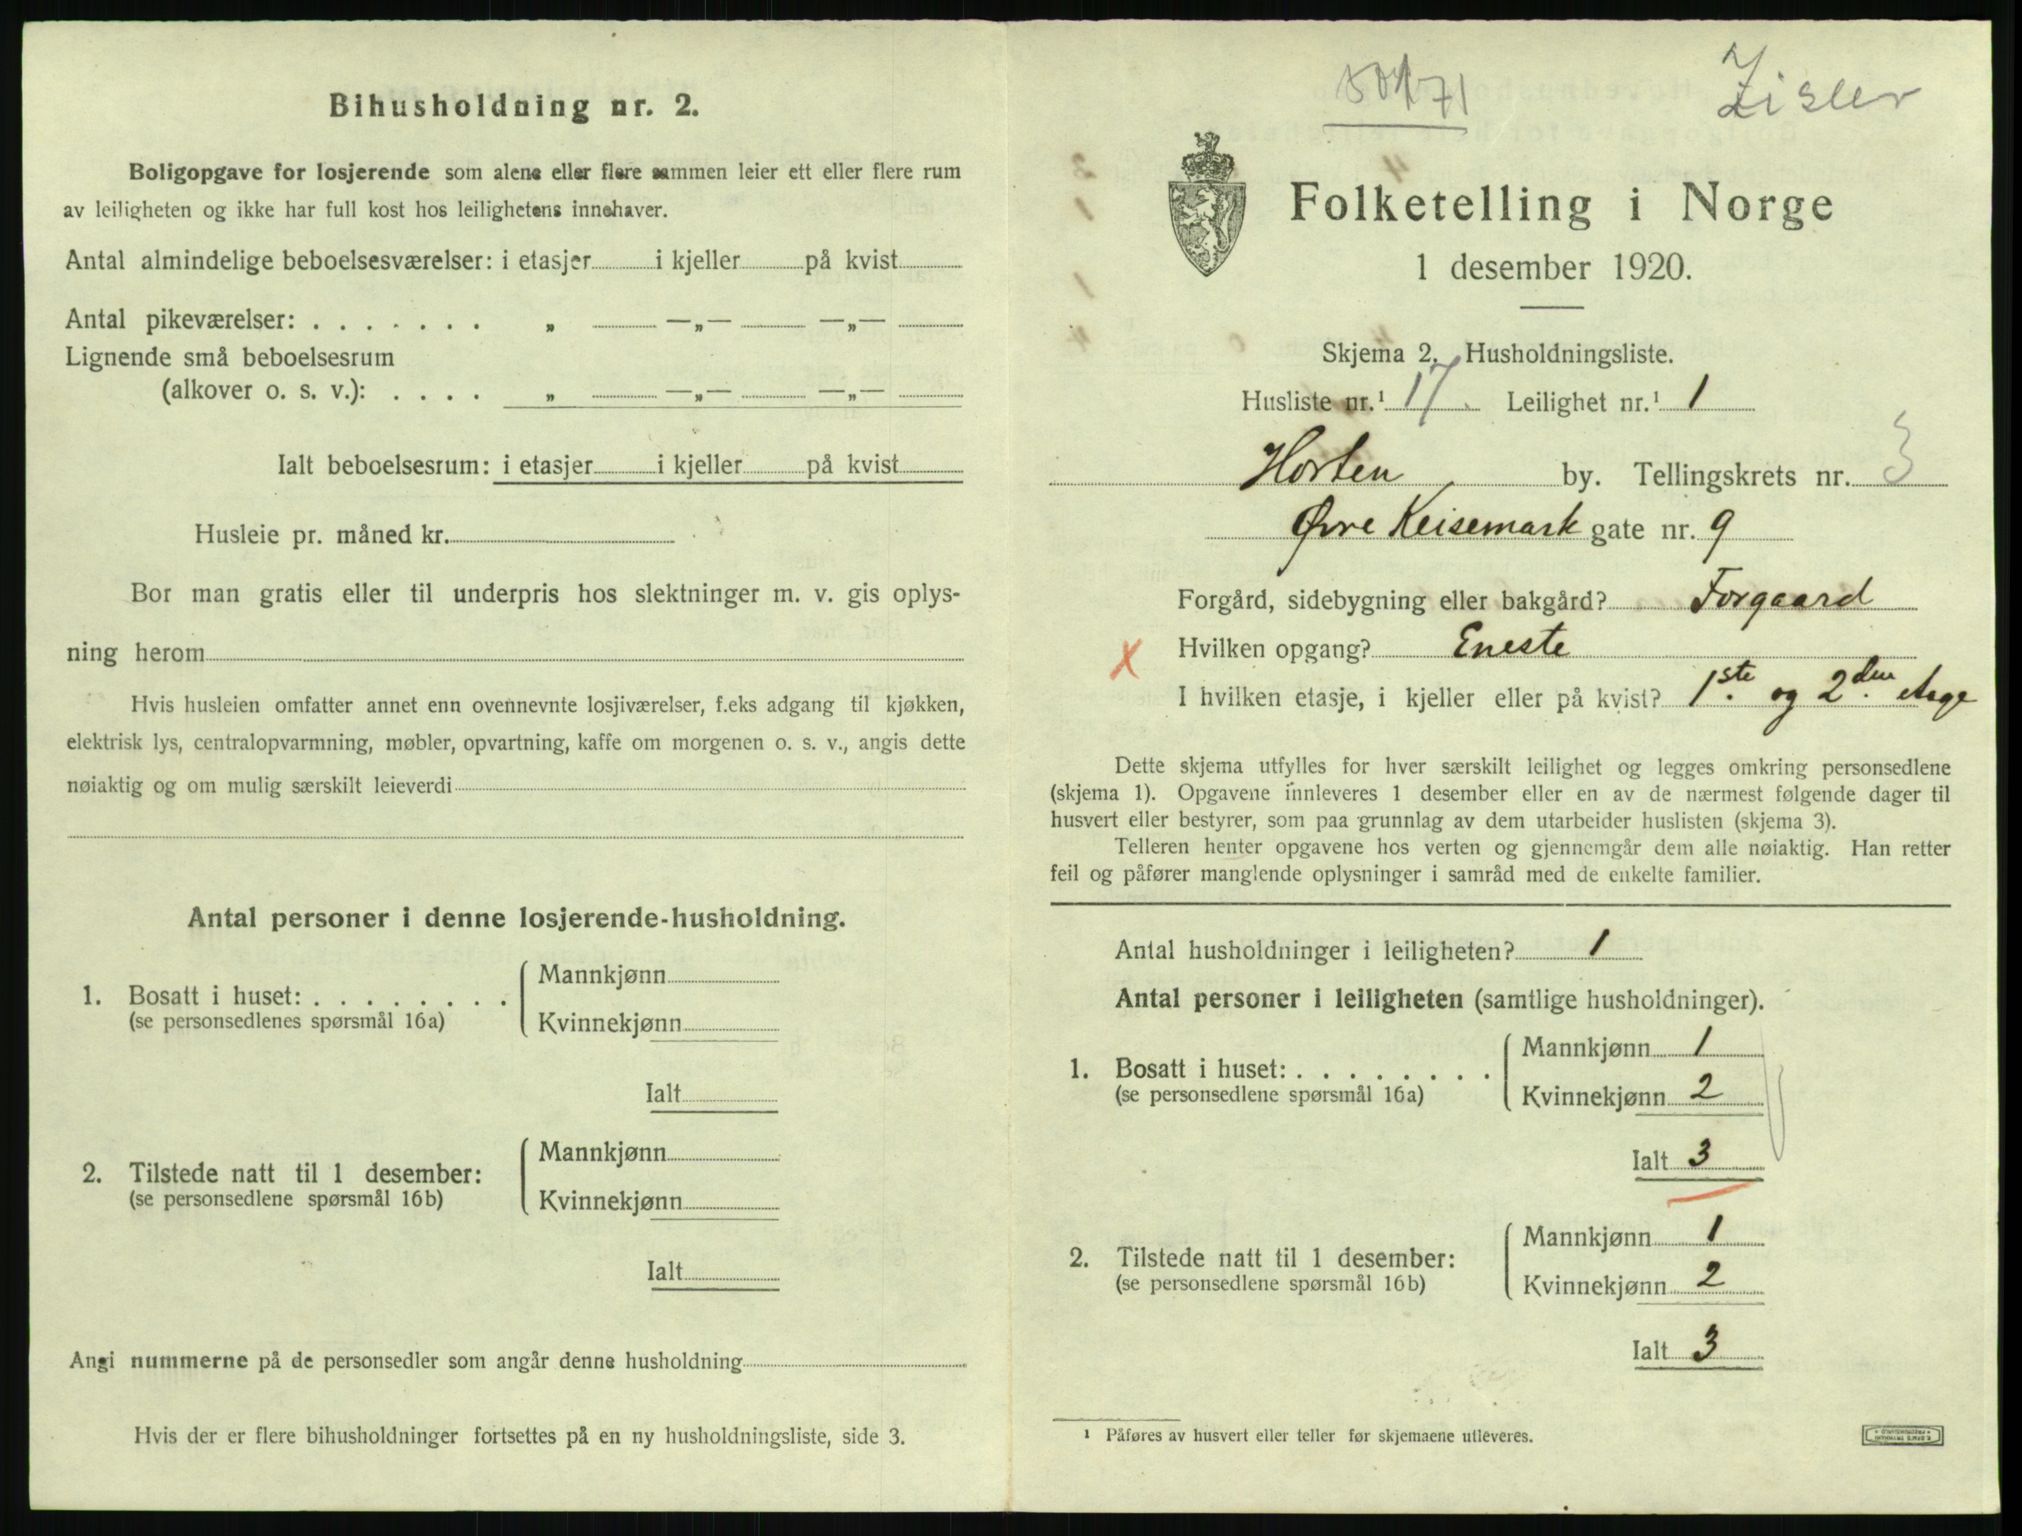 Bihusholdning nr. 2.
Boligopgave for losjerende som alene eller flere sammen leier ett eller flere rum
av leiligheten og ikke har full kost hos leilighetens innehaver.
Antal almindelige beboelsesværelser: i etasjer i kjeller på kvist
Antal pikeværelser: . . . . . . . „ —„— —„—
Lignende små beboelsesrum
(alkover o. s. v.): . . . . „ —„— —„—
Ialt beboelsesrum: i etasjer i kjeller på kvist
Husleie pr. måned kr.
Bor man gratis eller til underpris hos slektninger m. v. gis oplys-
ning herom
Hvis husleien omfatter annet enn ovennevnte losjiværelser, f.eks adgang til kjøkken,
elektrisk lys, centralopvarmning, møbler, opvartning, kaffe om morgenen o. s. v., angis dette
nøiaktig og om mulig særskilt leieverdi
Antal personer i denne losjerende-husholdning.
1. Bosatt i huset: . . . . . . . .
(se personsedlenes spørsmål 16a)
Mannkjønn
Kvinnekjønn
Ialt
2. Tilstede natt til 1 desember:
(se personsedlene spørsmål 16b)
Mannkjønn
Kvinnekjønn
Ialt
Angi nummerne på de personsedler som angår denne husholdning
Hvis der er flere bihusholdninger fortsettes på en ny husholdningsliste, side 3.
Zisler
Folketelling i Norge
1 desember 1920.
Skjema 2. Husholdningsliste.
Husliste nr.¹ 17. Leilighet nr.¹ 1
Horten by. Tellingskrets nr. 3
Øvre Keisemark gate nr. 9
Forgård, sidebygning eller bakgård? Forgaard
Hvilken opgang? Eneste
X
I hvilken etasje, i kjeller eller på kvist? 1ste og 2den etage
Dette skjema utfylles for hver særskilt leilighet og legges omkring personsedlene
(skjema 1). Opgavene innleveres 1 desember eller en av de nærmest følgende dager til
husvert eller bestyrer, som paa grunnlag av dem utarbeider huslisten (skjema 3).
Telleren henter opgavene hos verten og gjennemgår dem alle nøiaktig. Han retter
feil og påfører manglende oplysninger i samråd med de enkelte familier.
Antal husholdninger i leiligheten? 1
Antal personer i leiligheten (samtlige husholdninger).
1. Bosatt i huset: . . . . . . . .
(se personsedlene spørsmål 16a)
Mannkjønn 1
Kvinnekjønn 2
Ialt 3
2. Tilstede natt til 1 desember:
(se personsedlene spørsmål 16b)
Mannkjønn 1
Kvinnekjønn 2
Ialt 3
¹ Påføres av husvert eller teller før skjemaene utleveres.